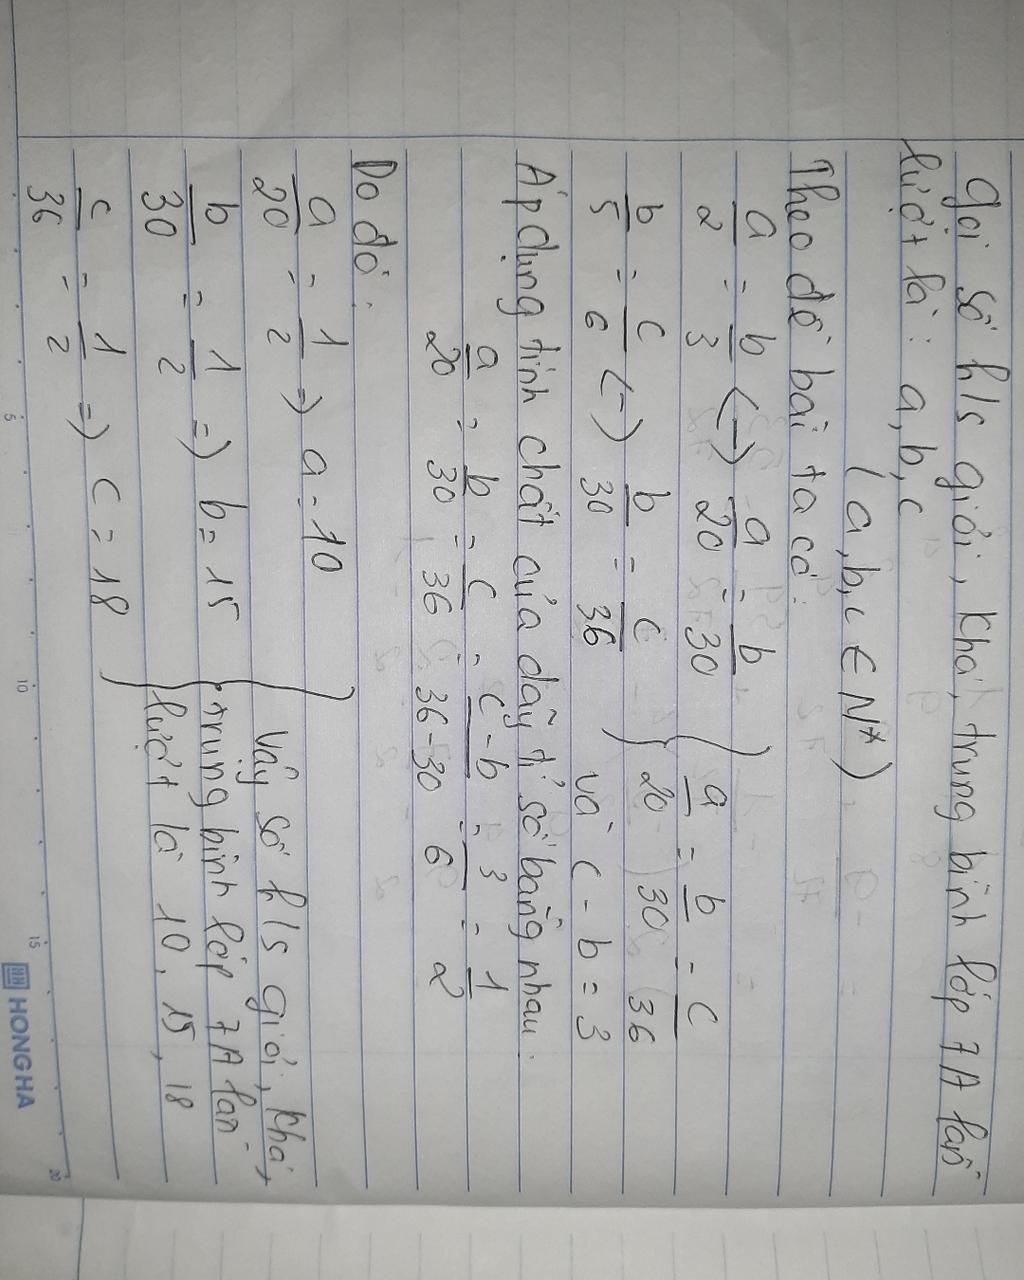 Gọi số hs giỏi, khá, trung bình lớp 7A lần
lượt là : a,b,c
(a,b,c ∈ N*)
Theo đề bài ta có:
a/2 = b/3 (=) a/20 = b/30 } a/20 = b/30 = c/36
b/5 = c/6 (=) b/30 = c/36 và c - b = 3
Áp dụng tính chất của dãy tỉ số bằng nhau.
a/20 = b/30 = c/36 = c-b/36-30 = 3/6 = 1/2
Do đó:
a/20 = 1/2 =) a = 10
b/30 = 1/2 =) b = 15
c/36 = 1/2 =) c = 18
Vậy số hs giỏi, khá,
trung bình lớp 7A lần
lượt là 10, 15, 18
5
10
15
20
HH HONG HA